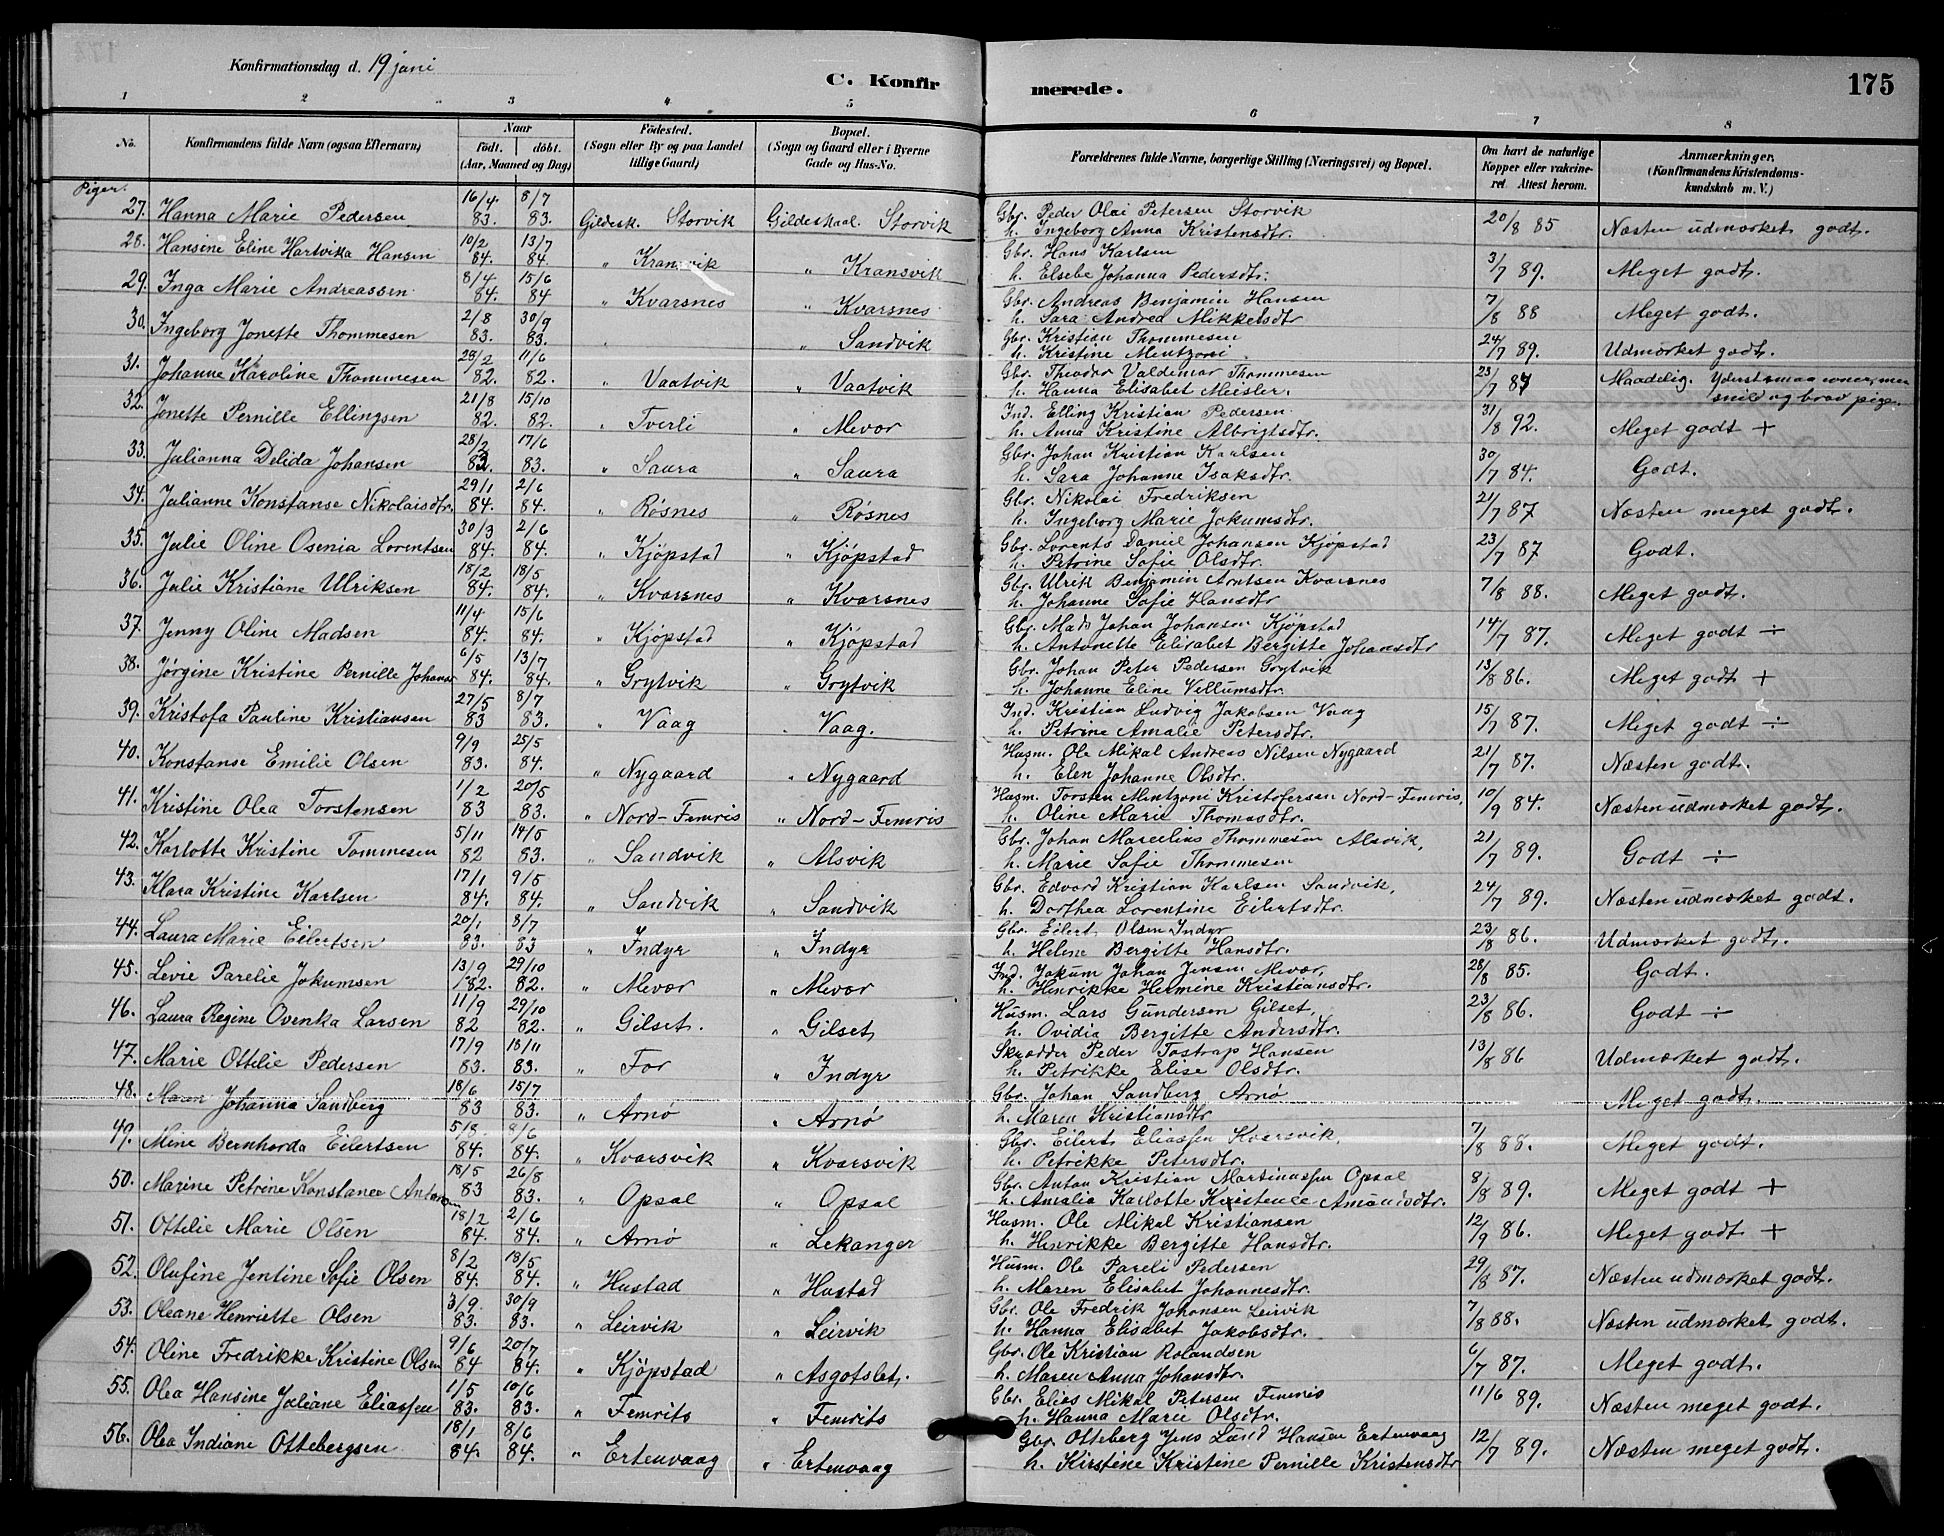 Konfirmationsdag d. 19 juni
C. Konfir merede. 175
1 2 3 4 5 6 7 8
No. Konfirmandens fulde Navn (ogsaa Efternavn) Naar födt. döbt. (Aar, Maaned og Dag) Födested. (Sogn eller By og paa Landet tillige Gaard) Bopæl. (Sogn og Gaard eller i Byerne Gade og Hus-No. Forældrenes fulde Navne, borgerlige Stilling (Næringsvei) og Bopæl. Om havt de naturlige Kopper eller vakcineret. Attest herom. Anmærkninger. (Konfirmandens Kristendomskundskab m. V.)
Piger.
27. Hanna Marie Pedersen 16/4 83. 8/7 83. Gildesk. Storvik Gildeskaal. Storvik Gbr. Peder Olai Petersen Storvik 20/8 85 Næsten udmærket godt.
h. Ingeborg Anna Kristensdtr.
28. Hansine Eline Hartvika Hansen 10/2 84. 13/7 84. " Kransvik " Kransvik Gbr. Hans Karlsen 3/7 89. Meget godt.
h. Elsebe Johanna Pedersdtr.
29. Inga Marie Andreassen 8/4 84. 15/6 84 " Kvarsnes " Kvarsnes Gbr. Andreas Benjamin Hansen 7/8 88 Meget godt.
h. Sara Andrea Mikkelsdtr
30. Ingeborg Jonette Thommesen 2/8 83. 30/9 83. " " Sandvik Gbr. Kristian Thommesen 24/7 89. Udmærket godt.
h. Kristine Mentzoni.
31. Johanne Karoline Thommesen 28/2 82. 11/6 82. " Vaatvik " Vaatvik Gbr. Theodor Valdemar Thommesen 23/7 87 Maadelig. Yderst smaa evner, men
h. Hanna Elisabet Meisler. snild og brav pige.
32. Jonette Pernille Ellingsen 21/8 82. 15/10 82. " Tverli " Mevær Ind. Elling Kristian Pedersen 31/8 92. Meget godt +
h. Anna Kristine Albrigtsdtr.
33. Julianna Delida Johansen 28/2 83. 17/6 83. " Saura " Saura Gbr. Johan Kristian Karlsen 30/7 84. Godt.
h. Sara Johanne Isaksdtr.
34. Julianne Konstanse Nikolaisdtr. 29/1 84. 2/6 84. " Røsnes " Røsnes Gbr. Nikolai Fredriksen 21/7 87 Næsten meget godt.
h. Ingeborg Marie Jokumsdtr.
35. Julie Oline Osenia Lorentsen 30/3 84. 2/6 84. " Kjøpstad " Kjøpstad Gbr. Lorents Daniel Johansen Kjøpstad 23/7 87 Godt.
h. Petrine Sofie Olsdtr.
36. Julie Kristiane Ulriksen 18/2 84. 18/5 84. " Kvarsnes " Kvarsnes Gbr. Ulrik Benjamin Arntsen Kvarsnes 7/8 88. Meget godt.
h. Johanne Sofie Hansdtr
37. Jenny Oline Madsen 11/4 84. 15/6 84. " Kjøpstad " Kjøpstad Gbr. Mads Johan Johansen Kjøpstad 14/7 87. Meget godt ÷
h. Antonette Elisabet Bergitte Johansdtr
38. Jørgine Kristine Pernille Johans 6/5 84. 13/7 84. " Grytvik " Grytvik Gbr. Johan Peter Pedersen Grytvik 13/8 86. Meget godt +
h. Johanne Eline Villumsdtr.
39. Kristofa Pauline Kristiansen 27/5 83 8/7 83. " Vaag " Vaag. Ind. Kristian Ludvig Jakobsen Vaag 15/7 87. Meget godt ÷
h. Petrine Amalie Petersdtr.
40. Konstanse Emilie Olsen 9/9 83. 25/5 84. " Nygaard " Nygaard Husm. Ole Mikal Andreas Nilsen Nygaard 21/7 87. Næsten godt.
h. Elen Johanne Olsdtr.
41. Kristine Olea Torstensen 1/2 83 20/5 83. " Nord-Femris " Nord-Femris Husm. Torsten Mentzoni Kristofersen Nord-Femris, 10/9 84. Næsten udmærket godt.
h. Oline Marie Thomasdtr.
42. Karlotte Kristine Tommesen 5/11 82 14/5 83. " Sandvik " Alsvik Gbr. Johan Marcelius Thommesen Alsvik, 21/7 89. Godt ÷
h. Marie Sofie Thommesen
43. Klara Kristine Karlsen 17/1 84. 9/5 84. " Sandvik " Sandvik Gbr. Edvard Kristian Karlsen Sandvik, 24/7 89. Næsten udmærket godt.
h. Dorthea Lorentine Eilertsdtr.
44. Laura Marie Eilertsen 20/1 83. 8/7 83 " Indyr " Indyr Gbr. Eilert Olsen Indyr 23/8 86. Udmærket godt.
h. Helene Bergitte Hansdtr.
45. Levie Parelie Jokumsen 13/9 82. 29/10 82. " Mevær " Mevær Ind. Jokum Johan Jensen Mevær, 28/8 85. Godt.
h. Henrikke Hermine Kristiansdtr.
46. Laura Regine Ovenka Larsen 11/9 82 29/10 82. " Gilset. " Gilset Husm. Lars Gundersen Gilset, 23/8 86. Godt ÷
h. Ovidia Bergitte Andersdtr.
47. Marie Ottilie Pedersen 17/9 83. 18/11 83. " For " Indyr Skrædder Peder Tostrup Hansen 13/8 86 Udmærket godt.
h. Petrikke Elise Olsdtr.
48. Maren Johanna Sandberg 18/6 83 15/7 83. " Arnø " Arnø Gbr. Johan Sandberg Arnø Meget godt.
h. Maren Kristiansdtr
49. Mine Bernharda Eilertsen 5/8 84. 8/6 84. " Kvarsvik " Kvarsvik Gbr. Eilert Eliassen Kvarsvik. 7/8 88. Meget godt.
h. Petrikke Petersdtr.
50. Marine Petrine Konstance Antonsen 18/5 83 26/8 83. " Opsal " Opsal Gbr. Anton Kristian Martinussen Opsal 8/8 89. Meget godt +
h. Amalia Karlotte Kristence Amundsdtr.
51. Ottilie Marie Olsen 18/2 84. 2/6 84. " Arnø " Lekanger Husm. Ole Mikal Kristiansen 12/9 86. Meget godt +
h. Henrikke Bergitte Hansdtr.
52. Olufine Jentine Sofie Olsen 8/2 84. 18/5 84. " Hustad " Hustad Husm. Ole Pareli Pedersen 29/8 87. Næsten udmærket godt.
h. Maren Elisabet Johannesdtr.
53. Oleane Henriette Olsen 3/9. 83. 30/9 83. " Leirvik " Leirvik Gbr. Ole Fredrik Johansen Leirvik 7/8 88. Næsten udmærket godt.
h. Hanna Elisabet Jakobsdtr.
54. Oline Fredrikke Kristine Olsen 9/6 84 20/7 84. " Kjøpstad " Asgotslet. Gbr. Ole Kristian Rolandsen 6/7 87. Meget godt.
h. Maren Anna Johansdtr.
55. Olea Hansine Juliane Eliassen 1/5 83. 10/6 83. " Femrits " Femrits Gbr. Elias Mikal Petersen Femris 11/6 89. Næsten meget godt.
h. Hanna Marie Olsdtr.
56. Olea Indiane Ottebergsen 18/1 84. 8/6 84. " Ertenvaag " Ertenvaag Gbr. Otteberg Jens Lund Hansen Ertenvaag 12/7 89. Næsten meget godt.
h. Kirstine Kristene Pernille Kristensdtr